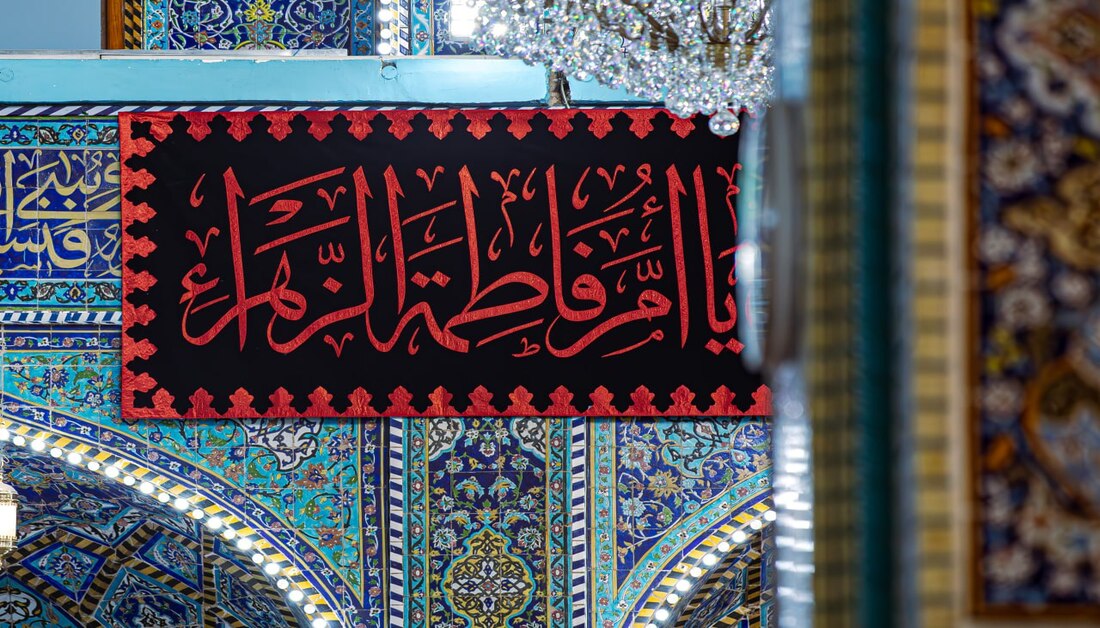 يا أُمَّ فَاطِمَةَ الزَّهْرَاء